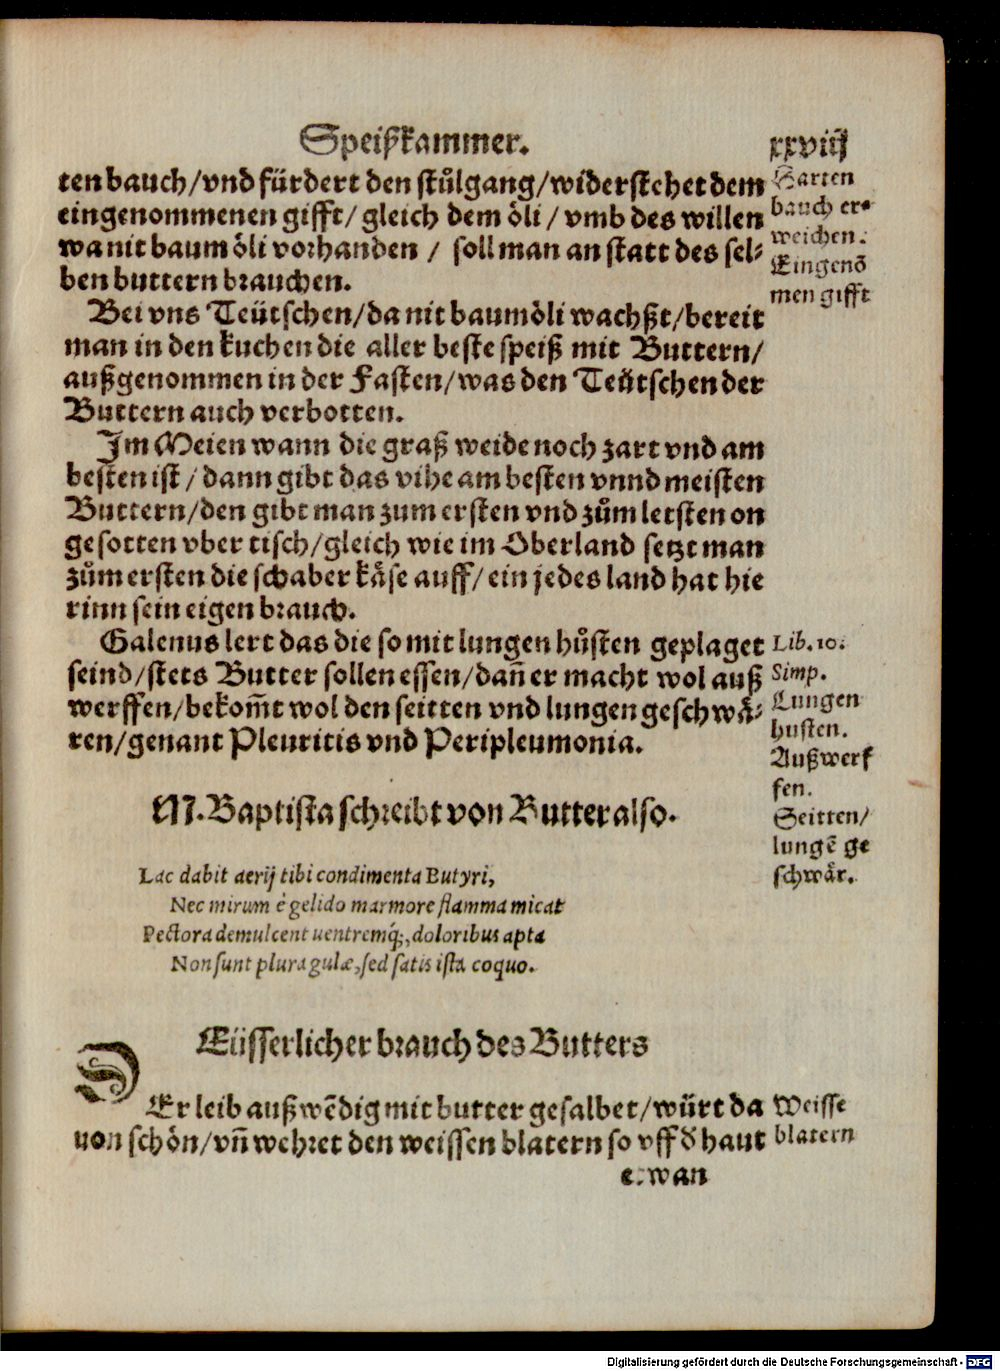 Speißkammer. xxviij
ten bauch/vnd fürdert den stůlgang/widerstehet dem
eingenommenen gifft/ gleich dem öli / vmb des willen
wa nit baum öli vorhanden / soll man an statt des sel-
ben buttern brauchen.
Harten
bauch er-
weichen.
Eingenõ
men gifft
Bei vns Teütschen/da nit baumöli wachßt/bereit
man in den kuchen die aller beste speiß mit Buttern/
außgenommen in der Fasten/was den Teütschen der
Buttern auch verbotten.
Im Meien wann die graß weide noch zart vnd am
besten ist / dann gibt das vihe am besten vnnd meisten
Buttern/den gibt man zum ersten vnd zům letsten on
gesotten vber tisch/gleich wie im Oberland setzt man
zům ersten die schaber käse auff/ ein jedes land hat hie
rinn sein eigen brauch.
Galenus lert das die so mit lungen hůsten geplaget
seind/stets Butter sollen essen/dañ er macht wol auß
werffen/bekom̃t wol den seitten vnd lungen geschwä-
ren/genant Pleuritis vnd Peripleumonia.
Lib. 10.
Simp.
Lungen
husten.
Außwerf
fen.
Seitten/
lungẽ ge
schwär.
M. Baptista schreibt von Butter also.
Lac dabit aerij tibi condimenta Butyri,
Nec mirum è gelido marmore flamma micat
Pectora demulcent uentremq́;, doloribus apta
Non sunt plura gulæ, sed satis ista coquo.
Eüsserlicher brauch des Butters
DEr leib außwẽdig mit butter gesalbet/würt da
von schön/vñ wehret den weissen blatern so vff d̕ haut
Weisse
blatern
etwan
Digitalisierung gefördert durch die Deutsche Forschungsgemeinschaft - DFG